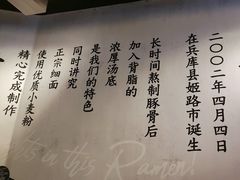 二〇〇二年四月四日
在兵库县姬路市诞生
长时间熬制豚骨后
加入背脂的
浓厚汤底
是我们的特色
同时讲究
正宗细面
使用优质小麦粉
精心完成制作
the Ramen